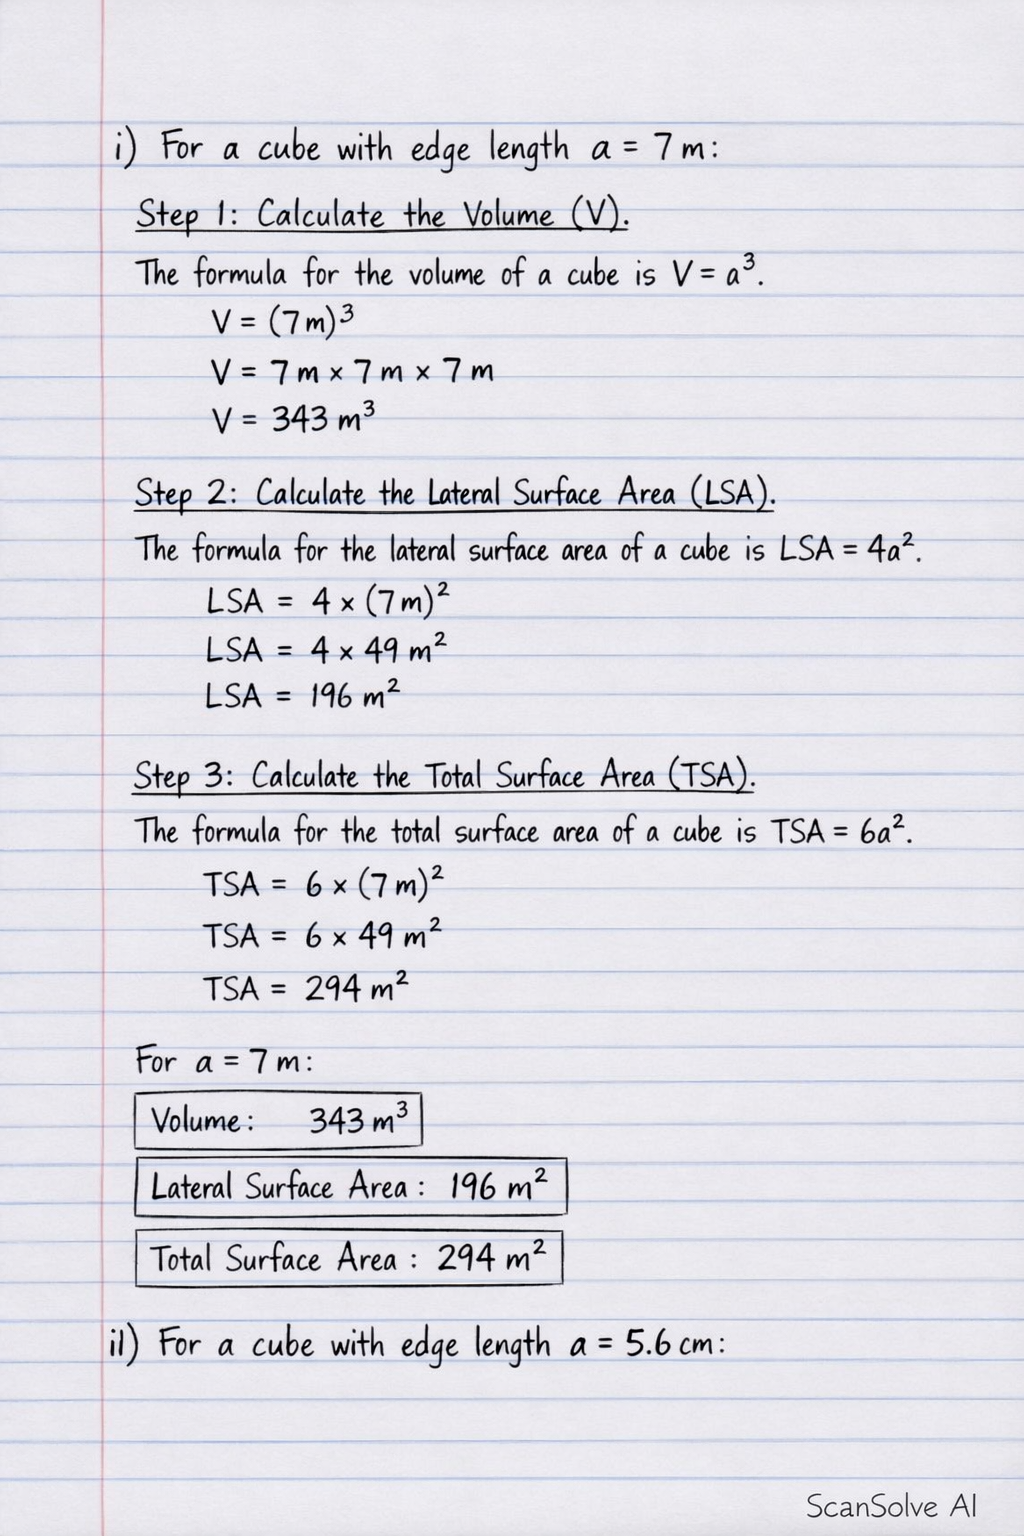 i) For a cube with edge length a = 7 m:
Step 1: Calculate the Volume (V).
The formula for the volume of a cube is V = a³.
V = (7 m)³
V = 7 m × 7 m × 7 m
V = 343 m³
Step 2: Calculate the Lateral Surface Area (LSA).
The formula for the lateral surface area of a cube is LSA = 4a².
LSA = 4 × (7 m)²
LSA = 4 × 49 m²
LSA = 196 m²
Step 3: Calculate the Total Surface Area (TSA).
The formula for the total surface area of a cube is TSA = 6a².
TSA = 6 × (7 m)²
TSA = 6 × 49 m²
TSA = 294 m²
For a = 7 m:
Volume: 343 m³
Lateral Surface Area : 196 m²
Total Surface Area : 294 m²
ii) For a cube with edge length a = 5.6 cm:
ScanSolve AI